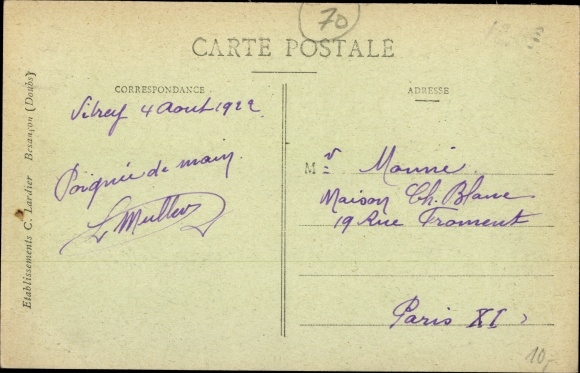 70
CARTE POSTALE
CORRESPONDANCE
Vitrey 4 Aout 1922
Poignée de main
L Muller
ADRESSE
Mr Monné
Maison Ch. Blanc
19 Rue Froment
Paris XI
10,-
Etablissements C. Lardier Besançon (Doubs)